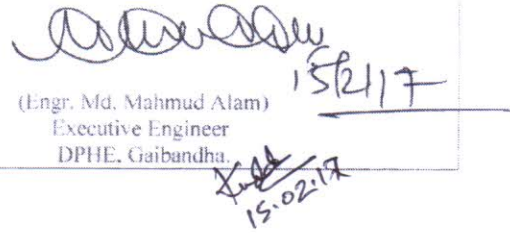 15/2/17
(Engr. Md. Mahmud Alam)
Executive Engineer
DPHE, Gaibandha.
15.02.17